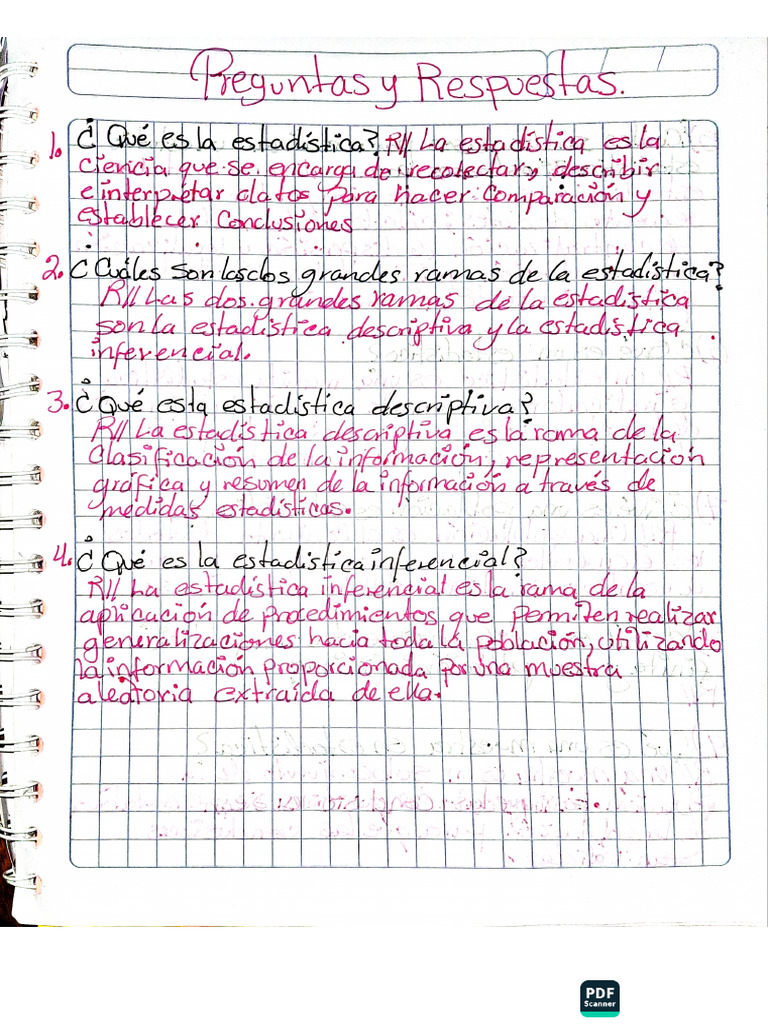 Preguntas y Respuestas.
1. ¿Qué es la estadística? R// La estadística es la
ciencia que se encarga de recolectar, describir
e interpretar datos para hacer comparación y
establecer conclusiones
2. ¿Cuáles son los dos grandes ramas de la estadística?
R// Las dos grandes ramas de la estadística
son la estadística descriptiva y la estadística
inferencial.
3. ¿Qué es la estadística descriptiva?
R// La estadística descriptiva es la rama de la
clasificación de la información, representación
gráfica y resumen de la información a través de
medidas estadísticas.
4. ¿Qué es la estadística inferencial?
R// La estadística inferencial es la rama de la
aplicación de procedimientos que permiten realizar
generalizaciones hacia toda la población, utilizando
la información proporcionada por una muestra
aleatoria extraída de ella.
PDF
Scanner